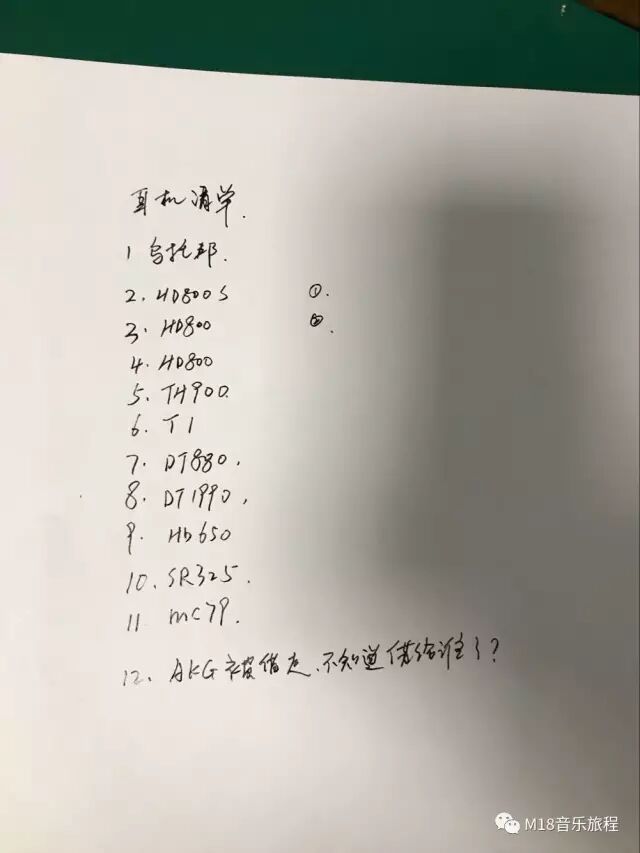 耳机清单.
1 乌托邦.
2. HD800S ①.
3. HD800 ②.
4. HD800
5. TH900.
6. T1
7. DT880.
8. DT1990.
9. HD650
10. SR325.
11 MC79.
12. AKG被借走、不知道借给谁了？
M18音乐旅程